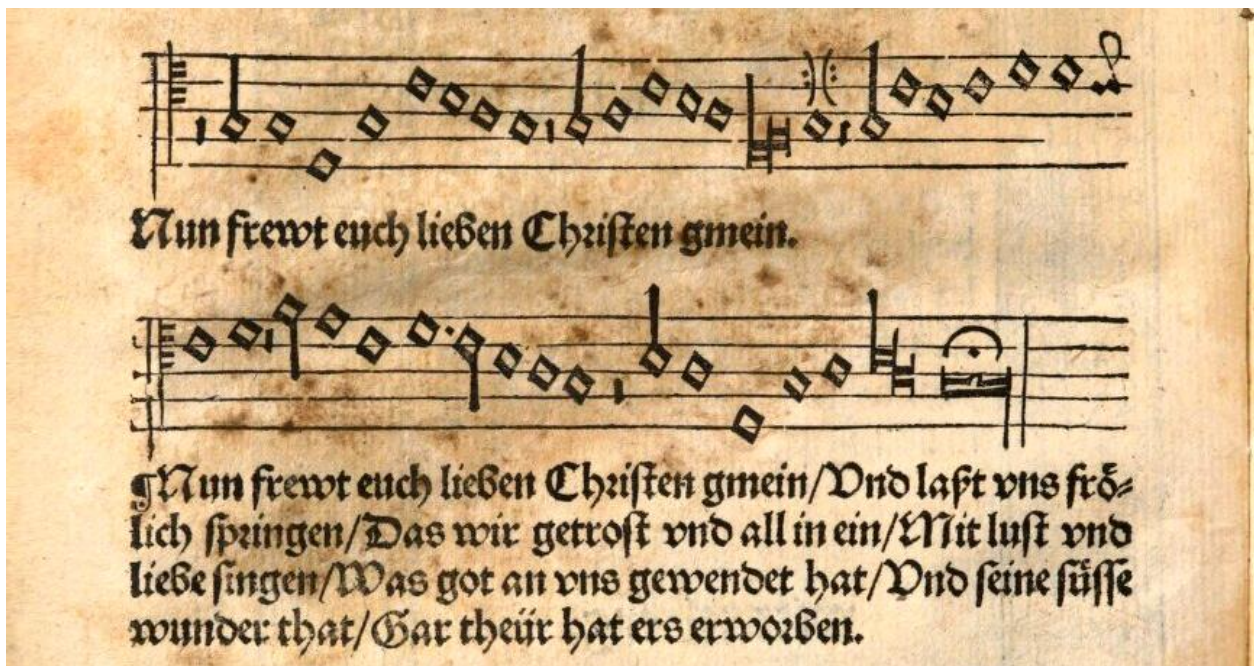 Nun frewt euch lieben Christen gmein.
¶Nun frewt euch lieben Christen gmein/Vnd laßt vns frö⸗
lich springen/Das wir getrost vnd all in ein/Mit lust vnd
liebe singen/Was got an vns gewendet hat/Vnd seine süsse
wunder that/Gar theür hat ers erworben.